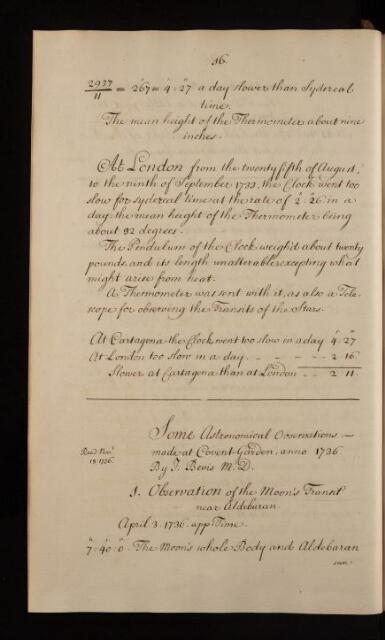 16.
2937/11 = 267" = 4': 27" a day slower than Sydereal
time.
The mean height of the Thermometer about nine
inches.
At London from the twenty fifth of August,
to the ninth of September 1733, the Clock went too
slow for sydereal time at the rate of 2': 26" in a
day the mean height of the Thermometer being
about 92 degrees.
The Pendulum of the Clock weight about twenty
pounds, and its length unalterable, excepting what
might arise from heat.
A Thermometer was sent with it, as also a Tele-
scope for observing the Transits of the Stars.
At Cartagena the Clock went too slow in a day 4': 27"
At London too slow in a day. - - - - 2 16
Slower at Cartagena than at London - - 2 11.
Some Astronomical Observations -
Read Nov.r
18. 1736.
made at Covent-Garden, anno 1736
By J. Bevis M.D.
1. Observation of the Moon's Transit
near Aldebaran.
April 3. 1736. app. Time.
7: 40: 0. The Moon's whole Body and Aldebaran